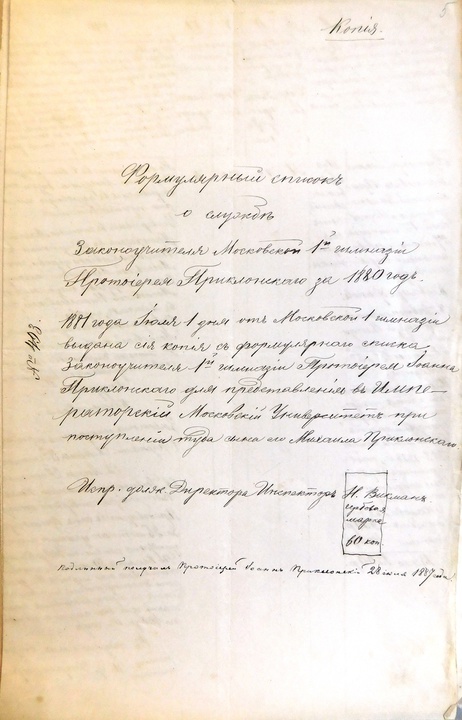 5
Копія.
Формулярный списокъ
о службѣ
Законоучителя Московской 1ой гимназіи
Протоіерея Приклонскаго за 1880 годъ.
1881 года Іюля 1 дня отъ Московской 1 гимназіи
выдана сія копія съ формулярнаго списка
Законоучителя 1ой гимназіи Протоіерея Іоанна
Приклонскаго для представленія въ Импе-
раторскій Московскій Университетъ при
поступленіи туда сына его Михаила Приклонскаго
№ 403.
Испр. долж. Директора Инспекторъ Н. Викманъ
гербовая
марка
60 коп
Подлинный получилъ Протоіерей Іоаннъ Приклонскій 28 1887 года